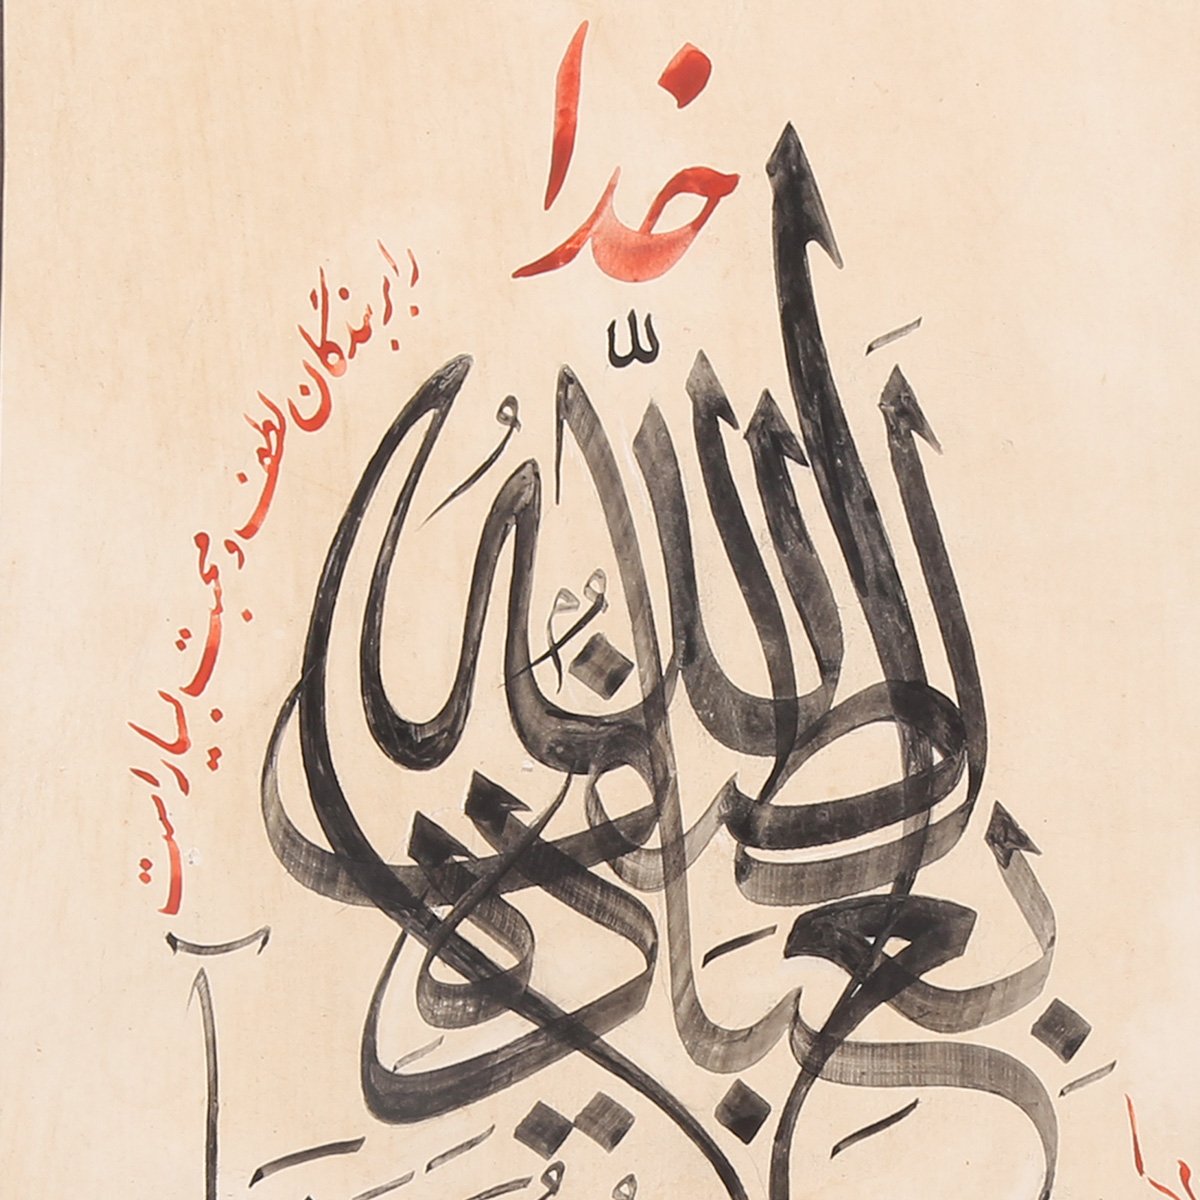 خدا
را بر بندگان لطف و محبت بسیار است
الله لطيف بعباده